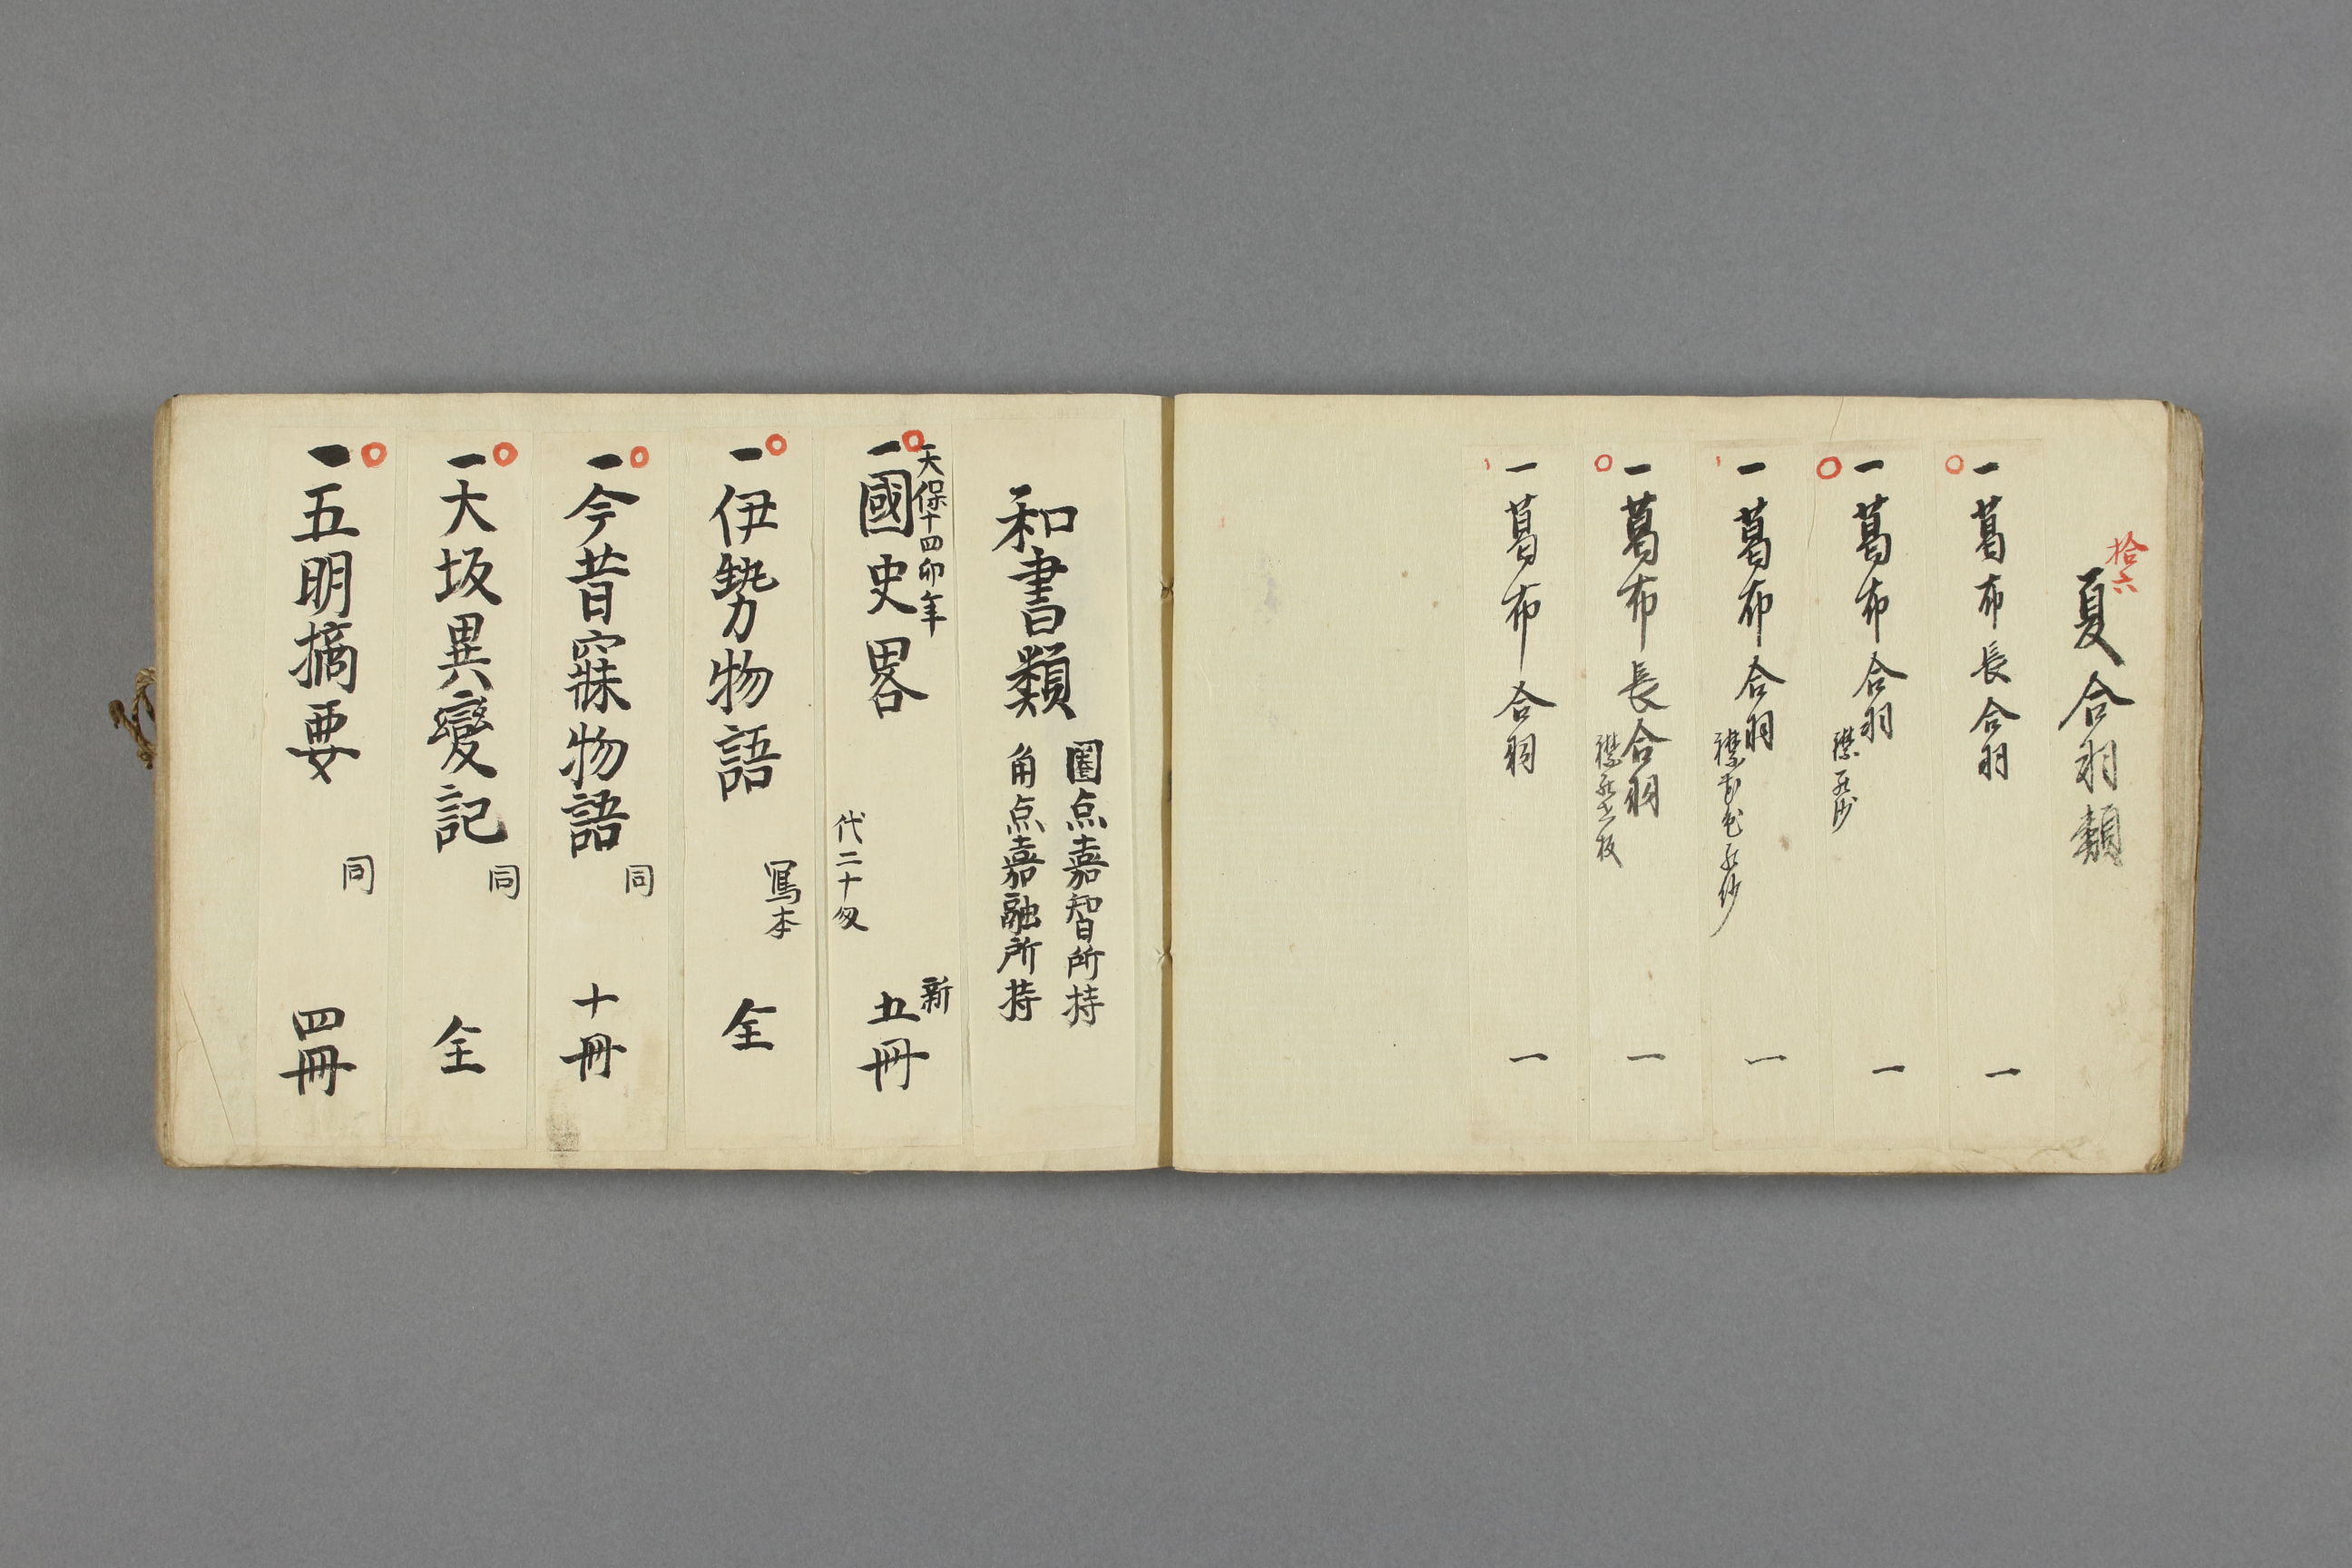 拾六
夏合羽類
一葛布長合羽 一
一葛布合羽 一
一葛布合羽 一
一葛布長合羽 一
一葛布合羽 一
和書類
圏点嘉智所持
角点嘉融所持
天保十四卯年
一國史畧 新 五冊
代二十匁
一伊勢物語 寫本 全
一今昔寤寐物語 同 十冊
一大坂異變記 同 全
一五明摘要 同 四冊